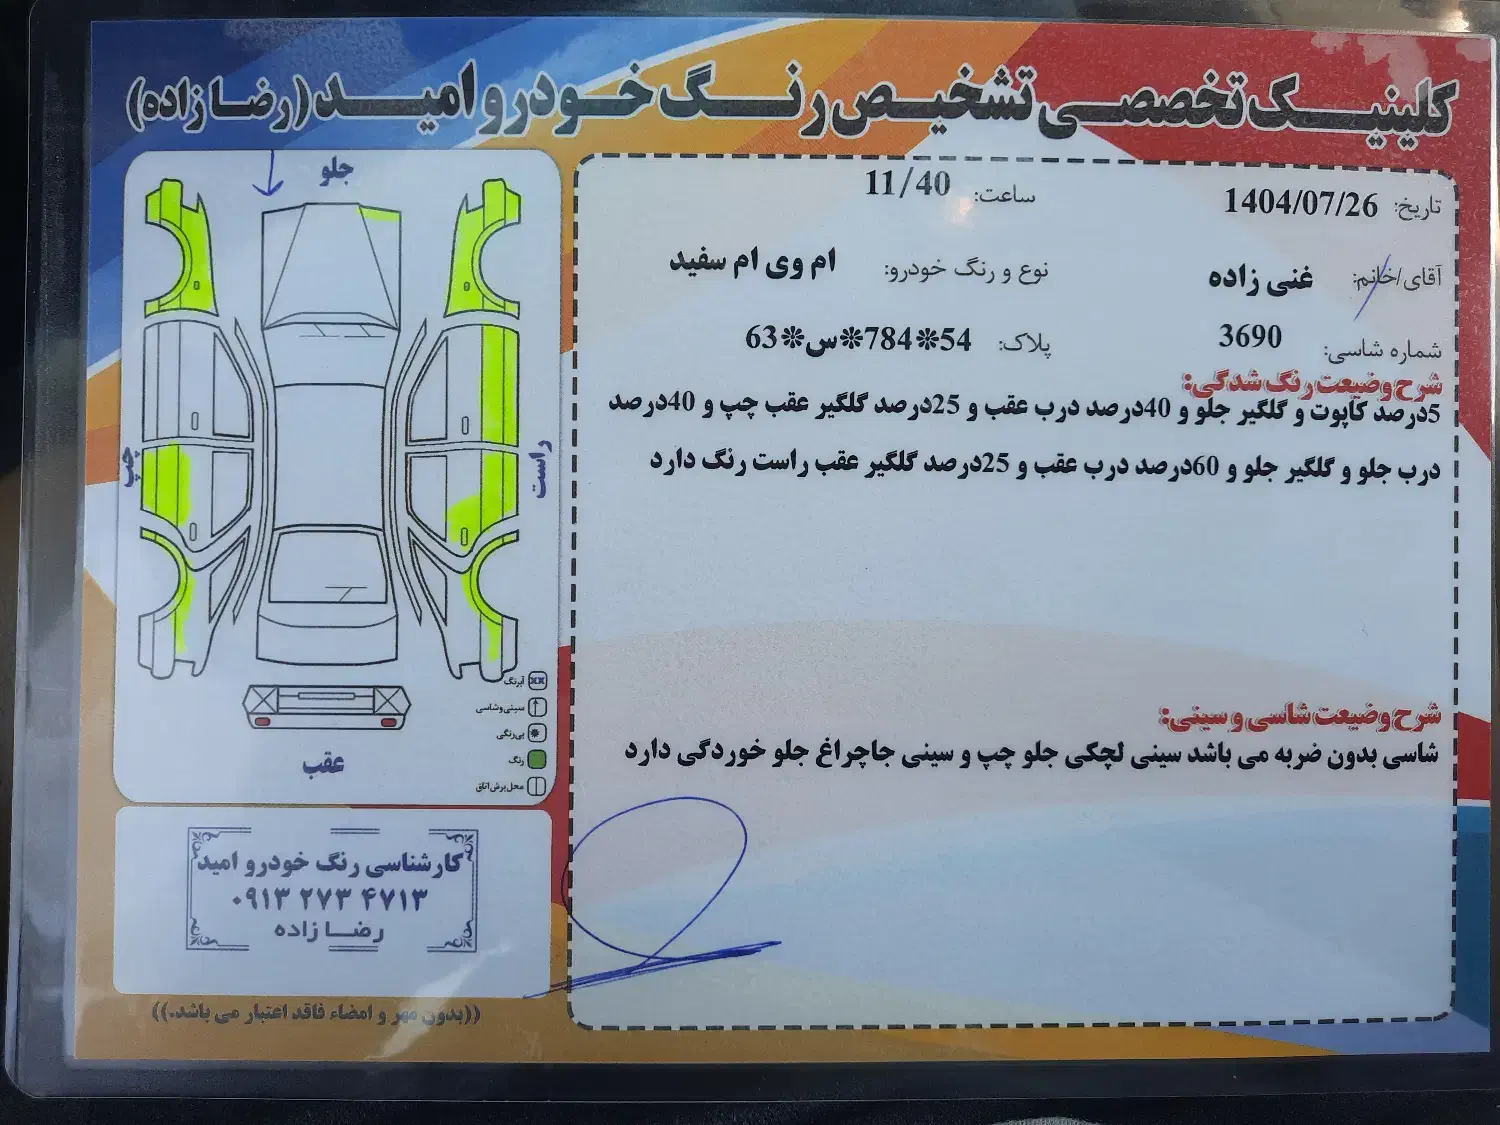 کلینیک تخصصی تشخیص رنگ خودرو امید (رضا زاده)
تاریخ: 1404/07/26 ساعت: 11/40
آقای/خانم: غنی زاده نوع و رنگ خودرو: ام وی ام سفید
شماره شاسی: 3690 پلاک: 54❊784❊س❊63
شرح وضیعت رنگ شدگی:
5درصد کاپوت و گلگیر جلو و 40درصد درب عقب و 25درصد گلگیر عقب چپ و 40درصد
درب جلو و گلگیر جلو و 60درصد درب عقب و 25درصد گلگیر عقب راست رنگ دارد
شرح وضیعت شاسی و سینی:
شاسی بدون ضربه می باشد سینی لچکی جلو چپ و سینی جاچراغ جلو خوردگی دارد
جلو
راست
چپ
عقب
آبرنگ
سینی و شاسی
بی رنگی
رنگ
محل برش اتاق
کارشناسی رنگ خودرو امید
۰۹۱۳ ۲۷۳ ۴۷۱۳
رضا زاده
((بدون مهر و امضاء فاقد اعتبار می باشد.))